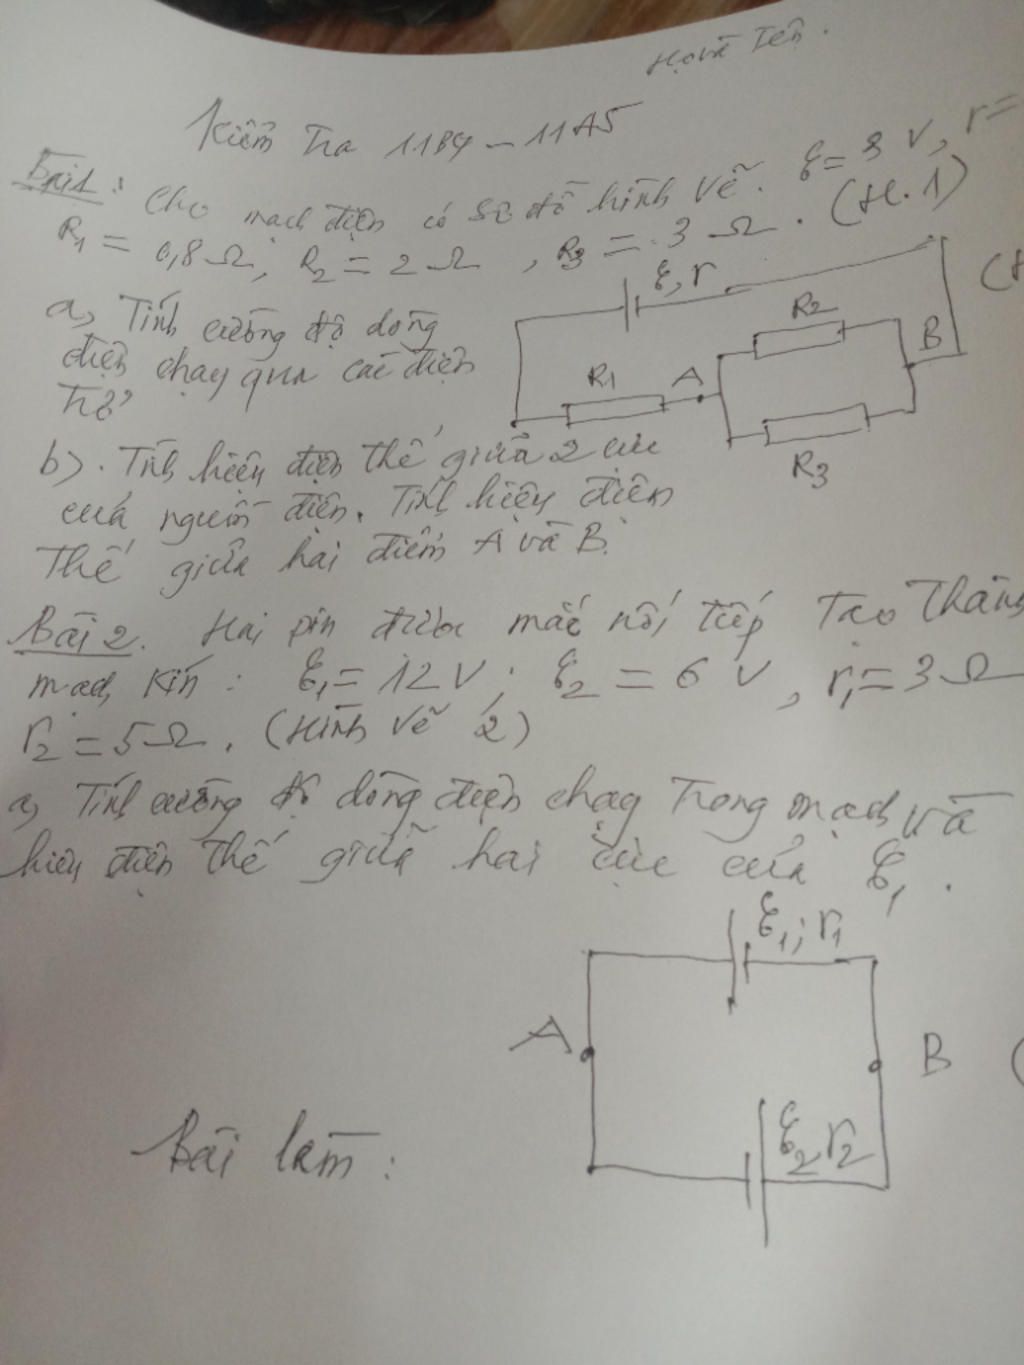 Họ và Tên.
Kiểm Tra 11B4 - 11A5
Bài 1: Cho mạch điện có sơ đồ hình vẽ. ξ = 3 V, r =
R1 = 0,8 Ω, R2 = 2 Ω, R3 = 3 Ω. (H.1)
a, Tính cường độ dòng
điện chạy qua các điện
trở
ξ, r
R1
A
R2
B
R3
b). Tính hiệu điện thế giữa 2 cực
của nguồn điện. Tính hiệu điện
thế giữa hai điểm A và B.
Bài 2. Hai pin được mắc nối tiếp tạo thành
mạch kín: ξ1 = 12 V; ξ2 = 6 V, r1 = 3 Ω
r2 = 5 Ω. (Hình vẽ 2)
a, Tính cường độ dòng điện chạy trong mạch và
hiệu điện thế giữa hai cực của ξ1.
ξ1; r1
A
B
ξ2 r2
Bài làm: